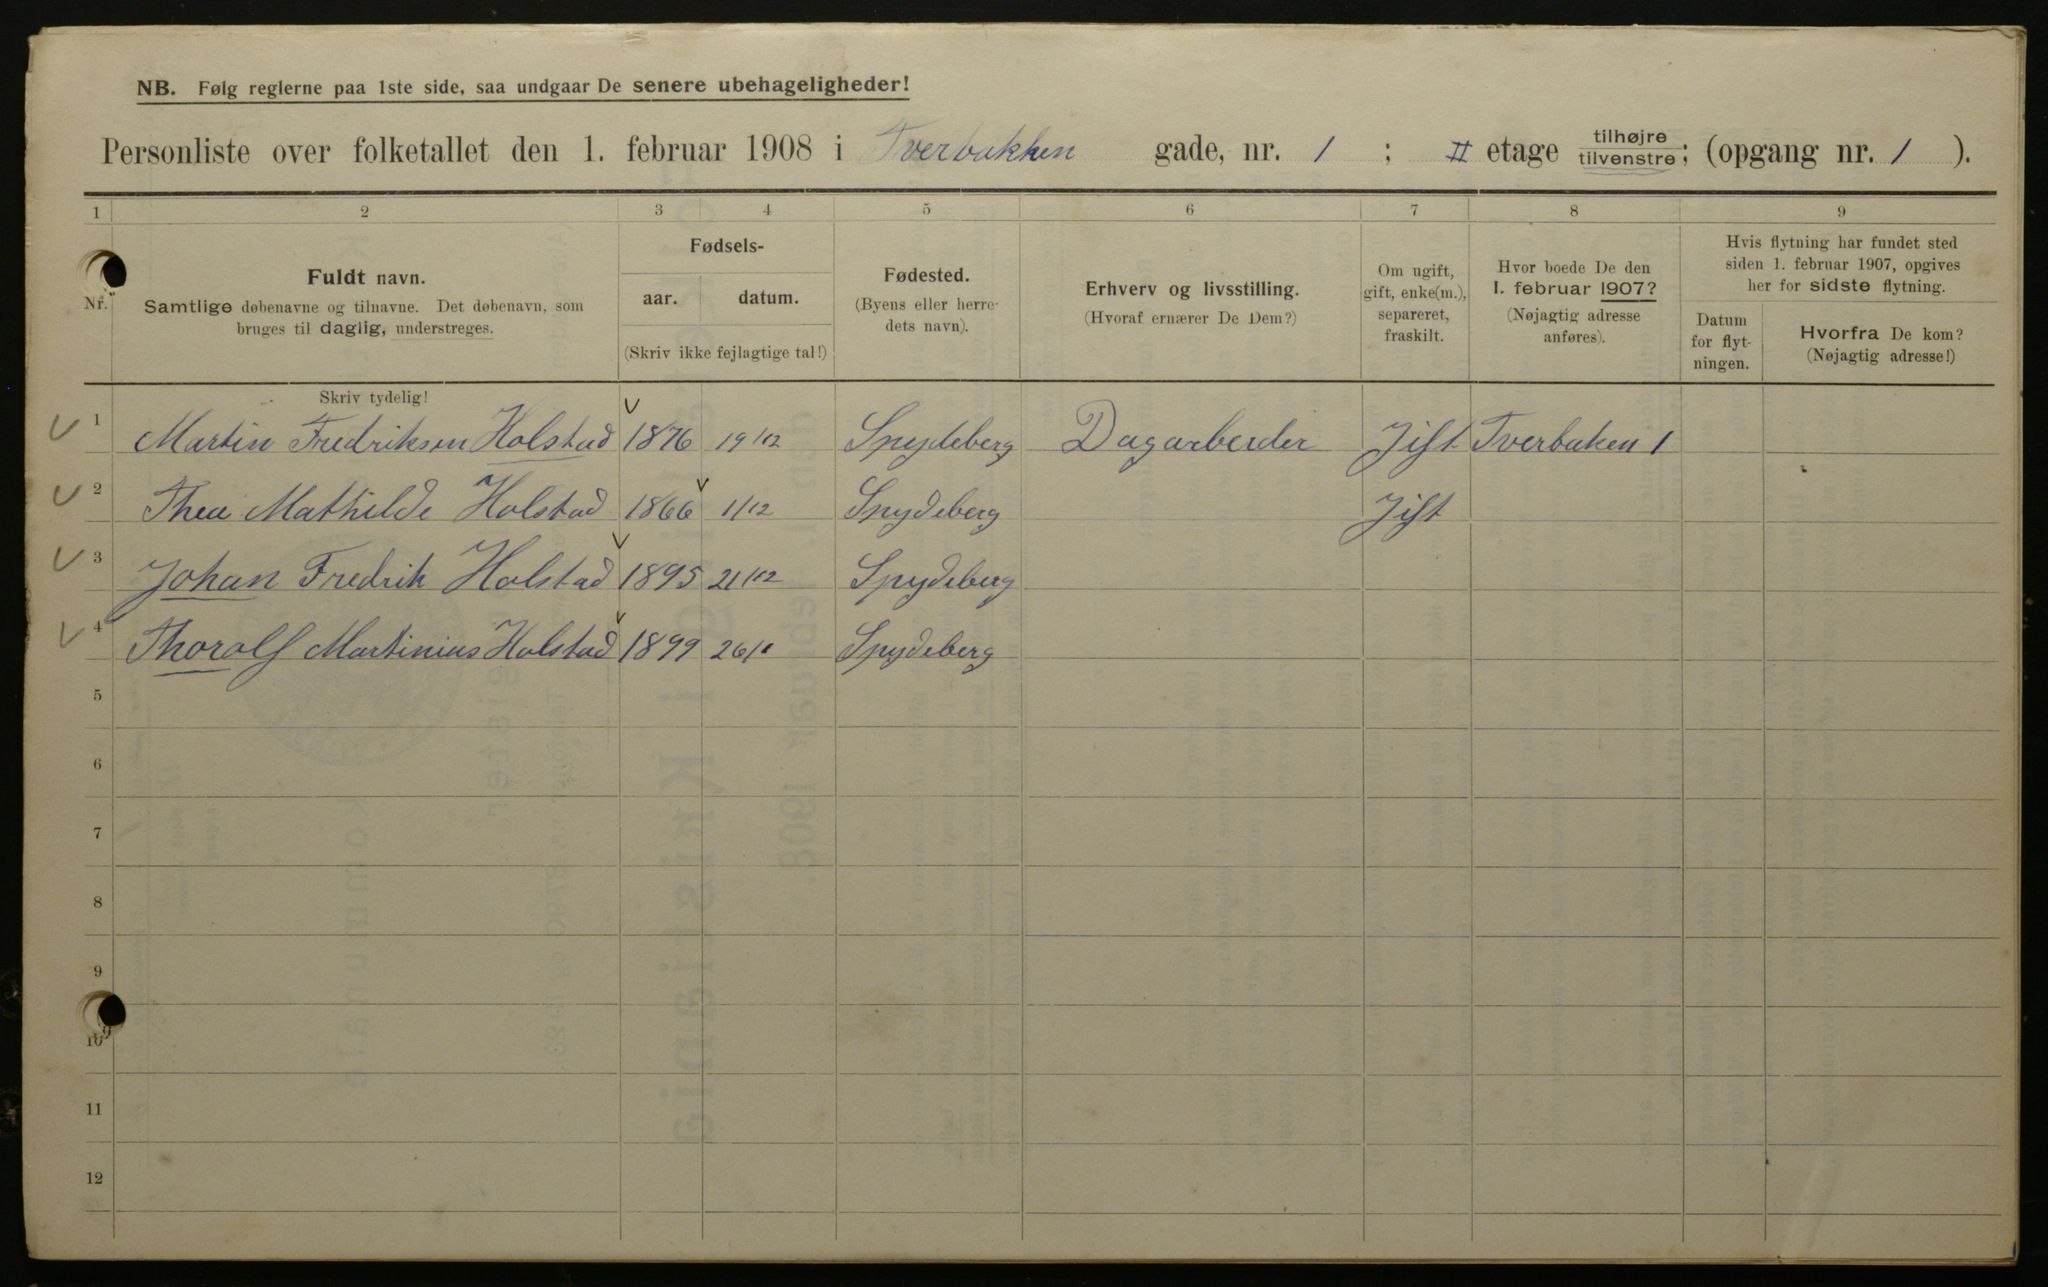 NB. Følg reglerne paa 1ste side, saa undgaar De senere ubehageligheder!
Personliste over folketallet den 1. februar 1908 i Tverbakken gade, nr. 1 ; II etage tilhøjre tilvenstre; (opgang nr. 1 ).
1 2 3 4 5 6 7 8 9
Nr.
Fuldt navn.
Samtlige døbenavne og tilnavne. Det døbenavn, som
bruges til daglig, understreges.
Skriv tydelig!
Fødsels-
aar. datum.
(Skriv ikke fejlagtige tal!)
Fødested.
(Byens eller herre-
dets navn).
Erhverv og livsstilling.
(Hvoraf ernærer De Dem?)
Om ugift,
gift, enke(m.),
separeret,
fraskilt.
Hvor boede De den
1. februar 1907?
(Nøjagtig adresse
anføres).
Hvis flytning har fundet sted
siden 1. februar 1907, opgives
her for sidste flytning.
Datum
for flyt-
ningen.
Hvorfra De kom?
(Nøjagtig adresse!)
1 Martin Fredriksen Holstad 1876 19/12 Spydeberg Dagarbeider Jift Tverbaken 1
2 Thea Mathilde Holstad 1866 1/12 Spydeberg Jift
3 Johan Fredrik Holstad 1895 21/12 Spydeberg
4 Thorolf Martinius Holstad 1899 Spydeberg
5
6
7
8
9
10
11
12